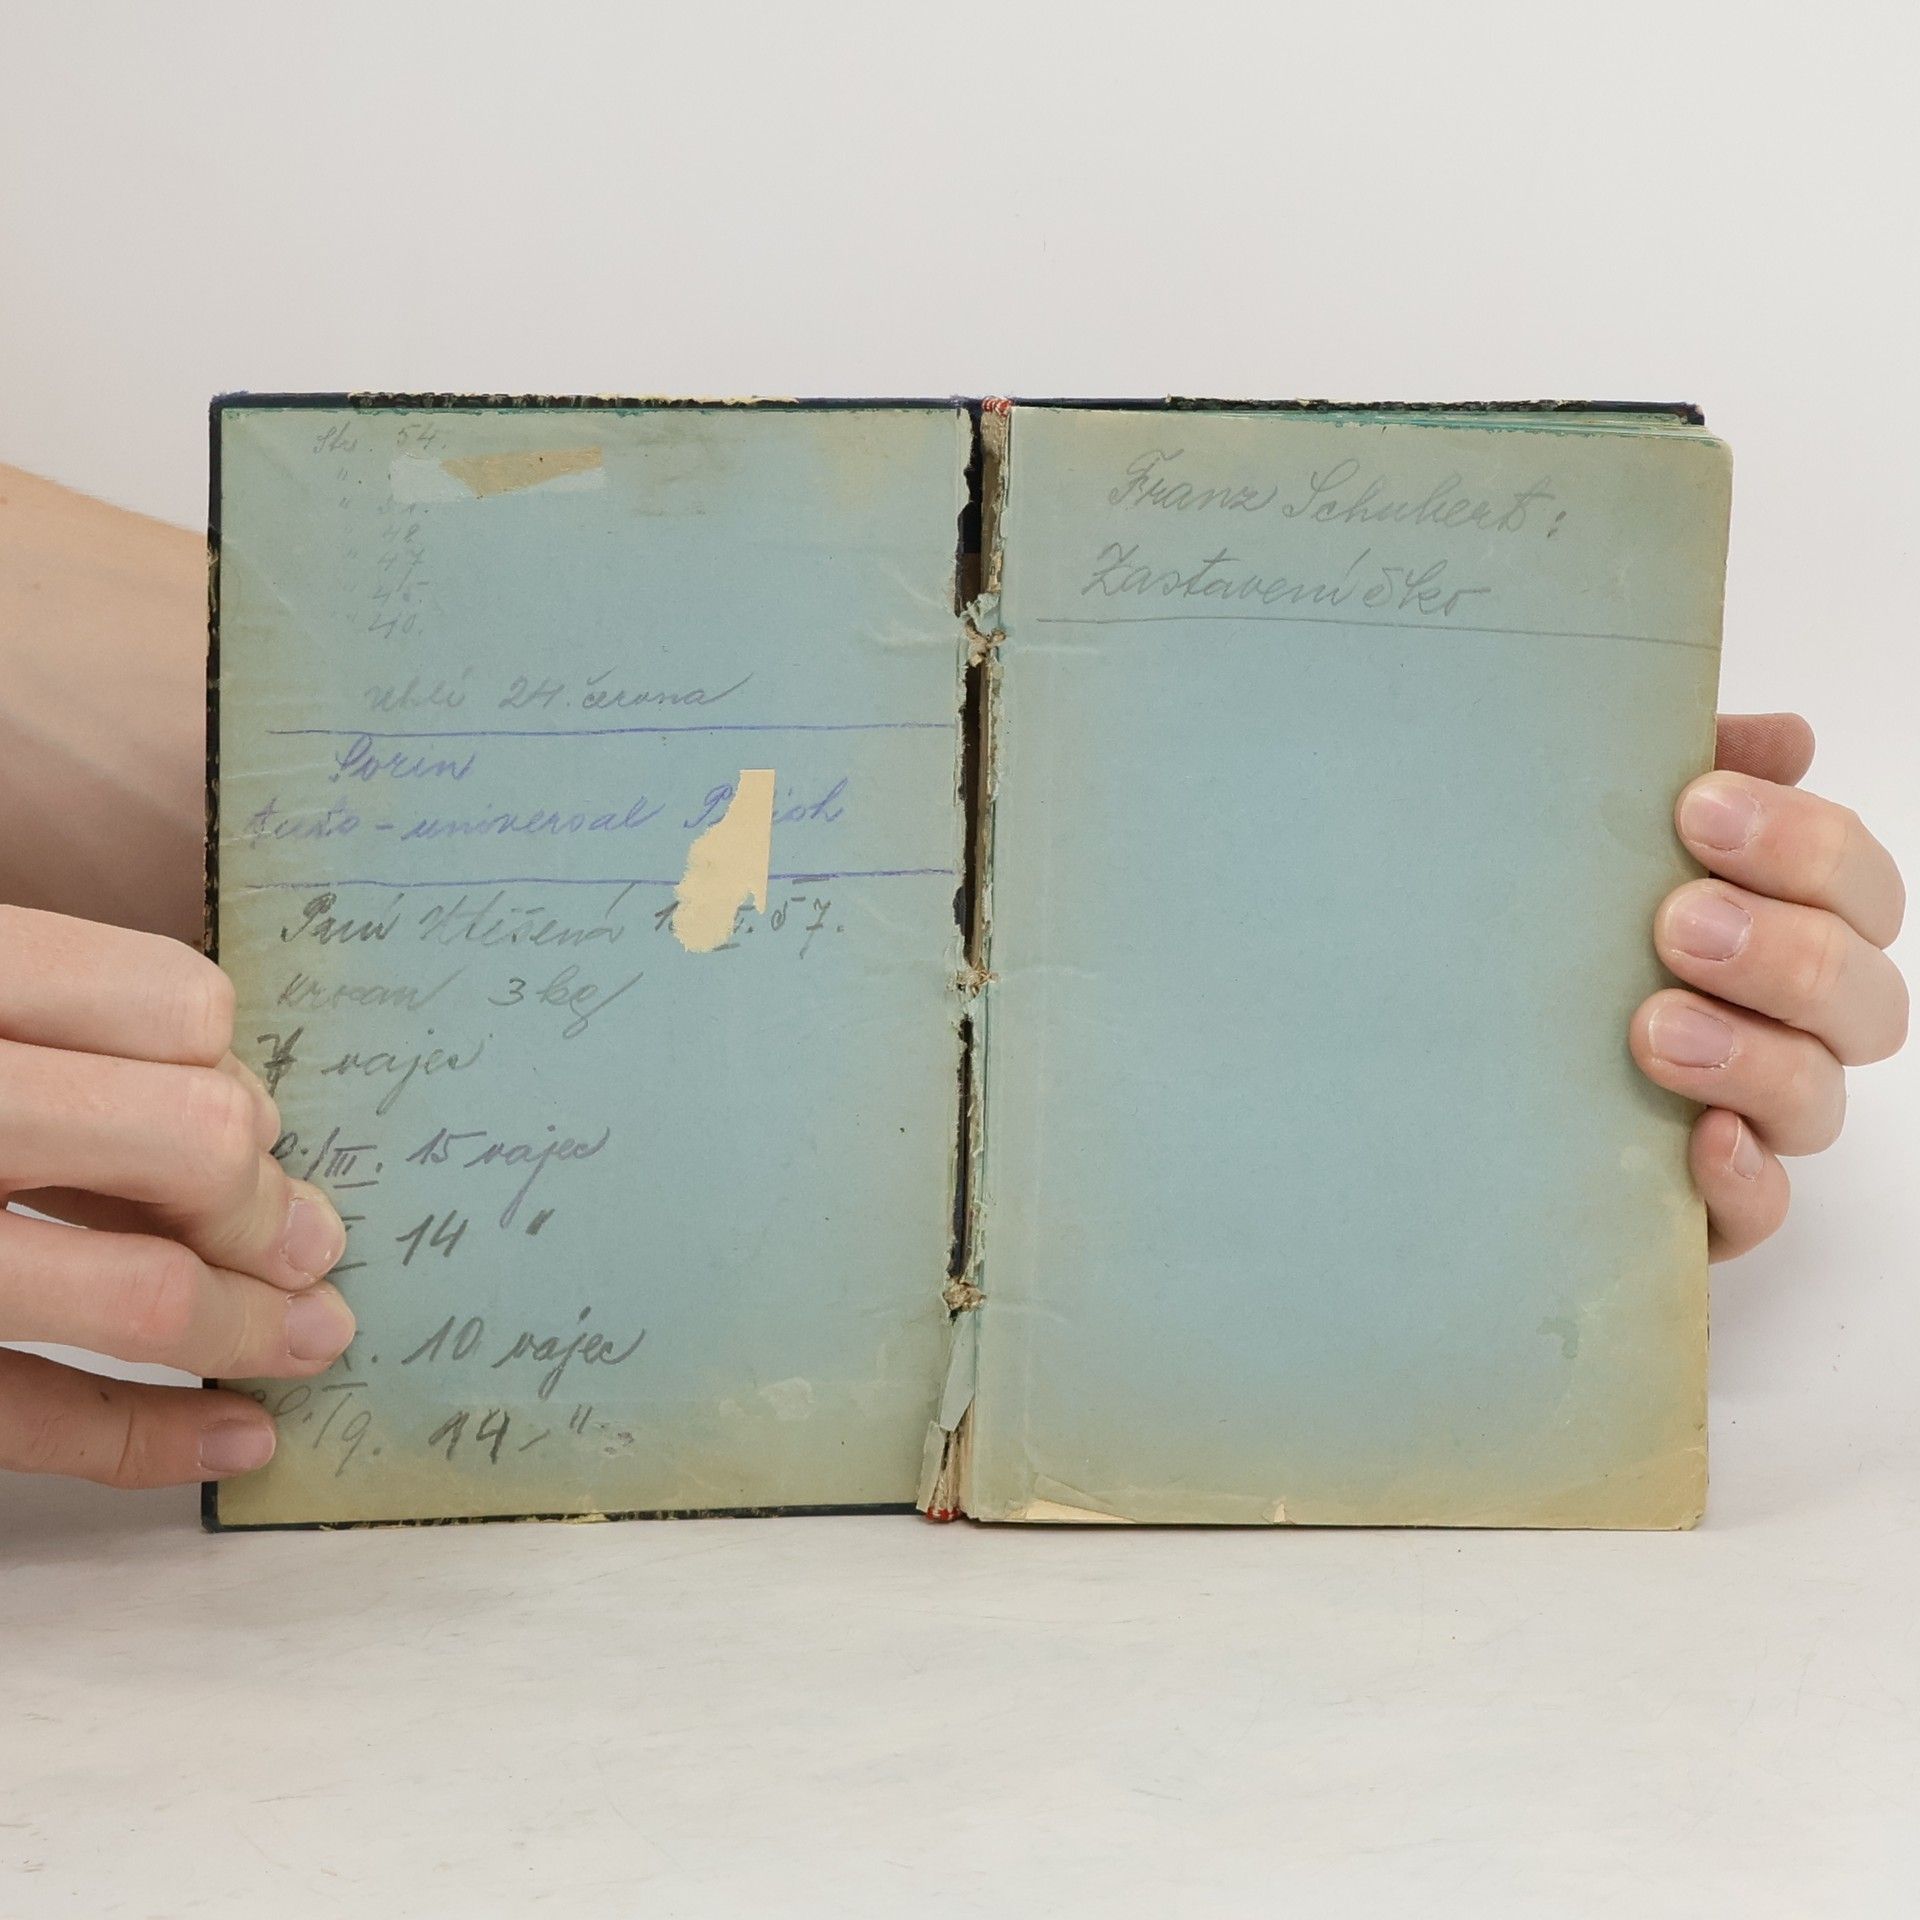 Str. 54.
"
" 51.
" 48
" 47
" 45.
" 40.
uhlí 24. června
Sorin
Auto-universal P
Paní 57.
krocan 3 kg
7 vajec
/III. 15 vajec
14 "
X. 10 vajec
/9. 14 "
Franz Schubert:
Zastaveníčko